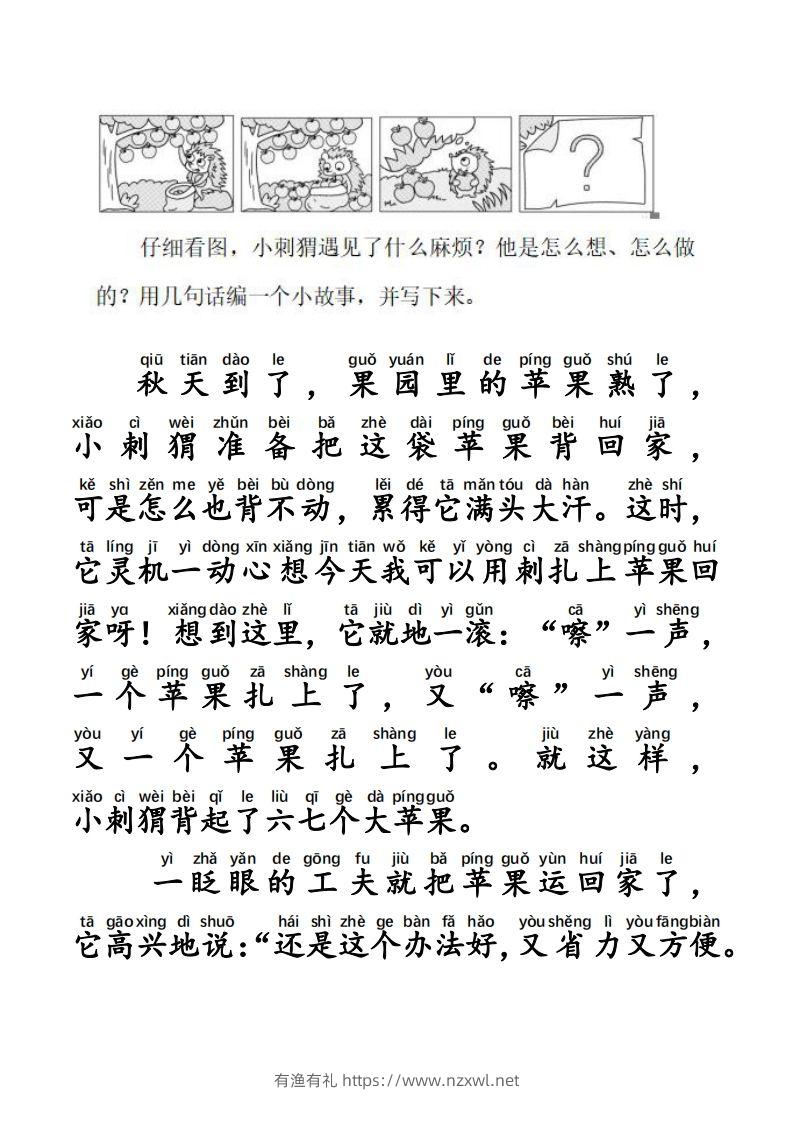 ?
仔细看图，小刺猬遇见了什么麻烦？他是怎么想、怎么做
的？用几句话编一个小故事，并写下来。
qiū tiān dào le guǒ yuán lǐ de píng guǒ shú le
秋天到了，果园里的苹果熟了，
xiǎo cì wèi zhǔn bèi bǎ zhè dài píng guǒ bèi huí jiā
小刺猬准备把这袋苹果背回家，
kě shì zěn me yě bèi bù dòng lěi dé tā mǎn tóu dà hàn zhè shí
可是怎么也背不动，累得它满头大汗。这时，
tā líng jī yì dòng xīn xiǎng jīn tiān wǒ kě yǐ yòng cì zā shàng píng guǒ huí
它灵机一动心想今天我可以用刺扎上苹果回
jiā ya xiǎng dào zhè lǐ tā jiù dì yì gǔn cā yì shēng
家呀！想到这里，它就地一滚：“嚓”一声，
yí gè píng guǒ zā shàng le yòu cā yì shēng
一个苹果扎上了，又“嚓”一声，
yòu yí gè píng guǒ zā shàng le jiù zhè yàng
又一个苹果扎上了。就这样，
xiǎo cì wèi bèi qǐ le liù qī gè dà píng guǒ
小刺猬背起了六七个大苹果。
yì zhǎ yǎn de gōng fu jiù bǎ píng guǒ yùn huí jiā le
一眨眼的工夫就把苹果运回家了，
tā gāo xìng dì shuō hái shì zhè ge bàn fǎ hǎo yòu shěng lì yòu fāng biàn
它高兴地说：“还是这个办法好，又省力又方便。
有渔有礼 https://www.nzxwl.net